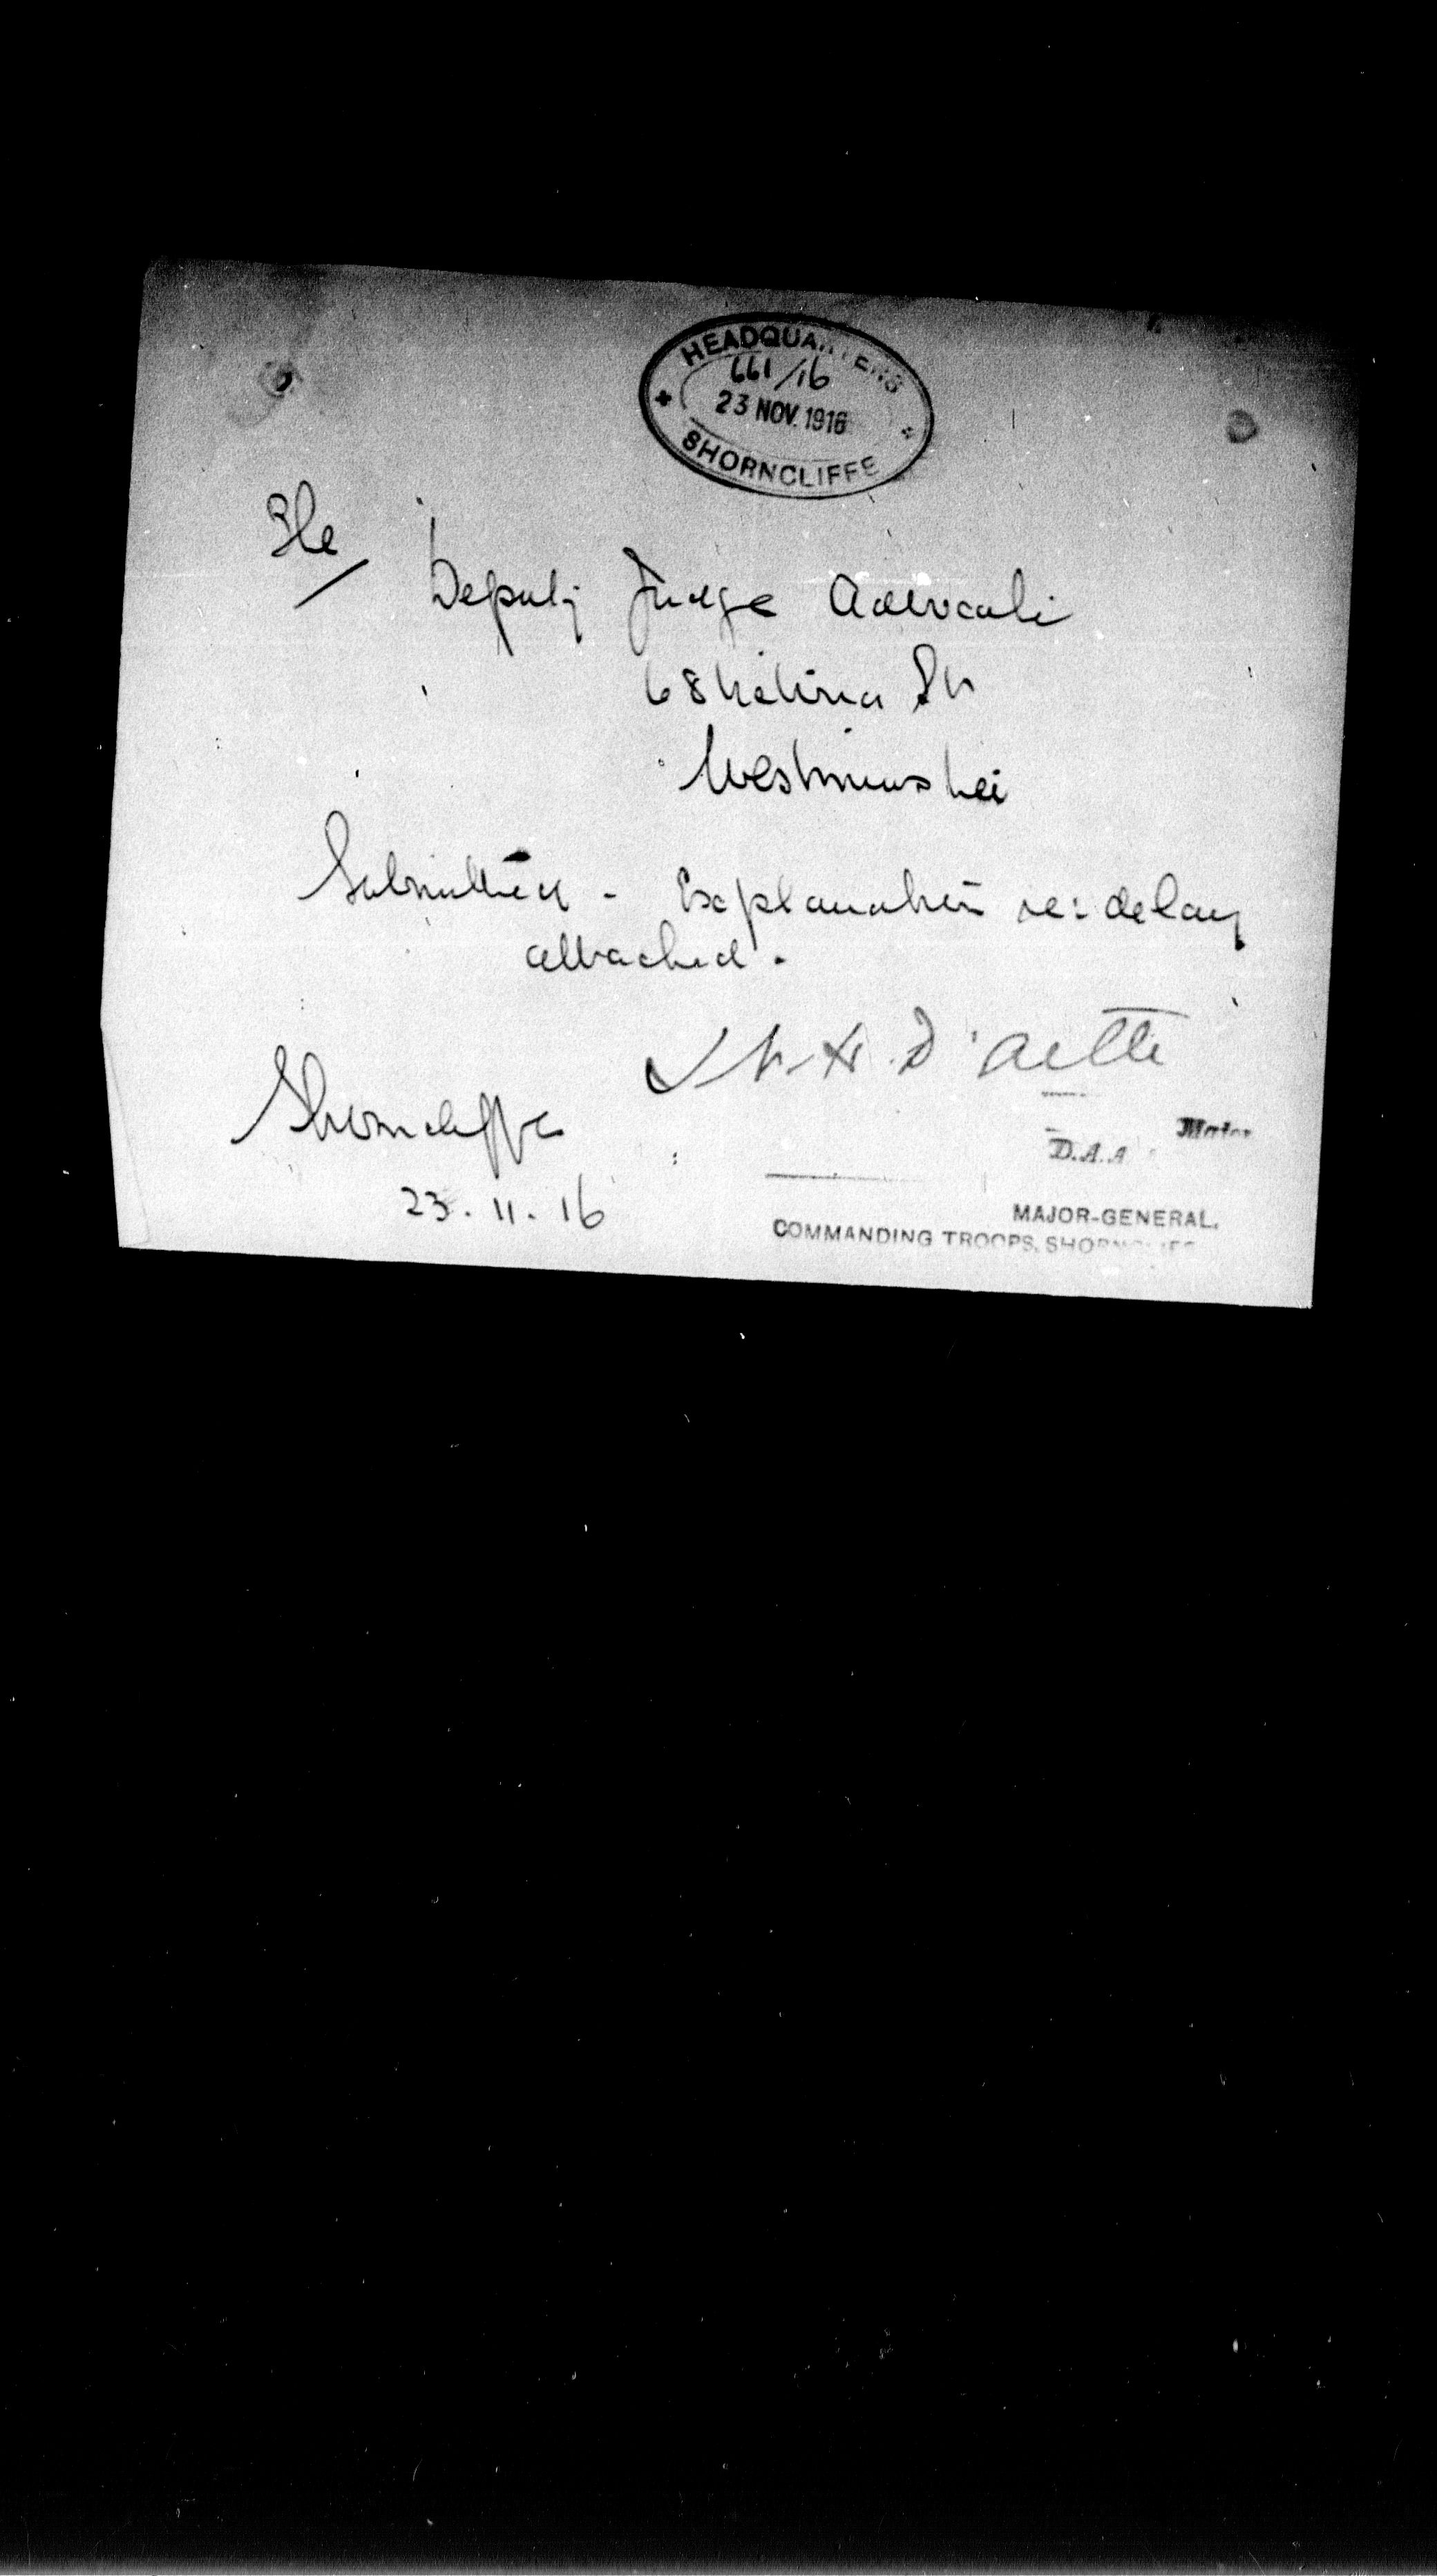 HEADQUARTERS
661/16
23 NOV. 1916
SHORNCLIFFE
The/
Deputy Judge Advocate
68 Victoria St
Westminster
Submitted - Explanation re: delay
attached.
D'Aeth
Major
D.A.A
Shorncliffe
23.11.16
MAJOR-GENERAL,
COMMANDING TROOPS, SHORNCLIFFE